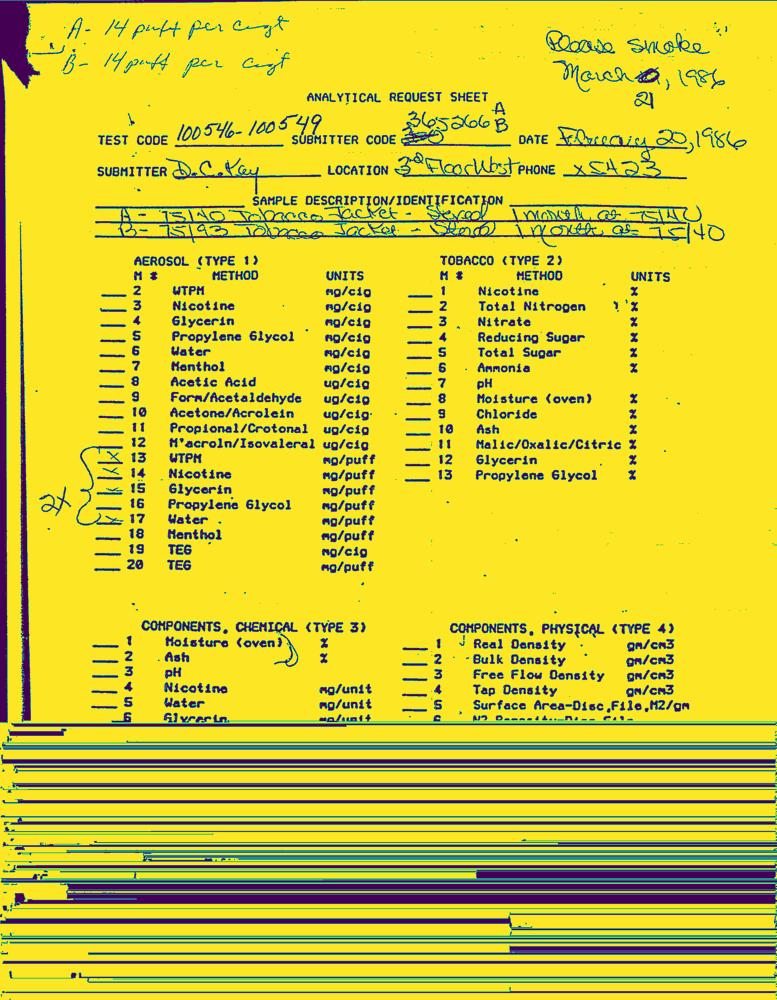 A- 14 puff per cigt
B- 14 puff per cigt
Please smoke
March 21, 1986
ANALYTICAL REQUEST SHEET
TEST CODE 100546-100549 SUBMITTER CODE 365266 A B DATE February 20, 1986
SUBMITTER D.C.Kay LOCATION 3rd Floor West PHONE x5423
SAMPLE DESCRIPTION/IDENTIFICATION
A- 75/40 Tobacco Jacket - Stored 1 month at 75/40
B- 75/93 Tobacco Jacket - Stored 1 month at 75/40
AEROSOL (TYPE 1)
M # METHOD UNITS
2 WTPM mg/cig
3 Nicotine mg/cig
4 Glycerin mg/cig
5 Propylene Glycol mg/cig
6 Water mg/cig
7 Menthol mg/cig
8 Acetic Acid ug/cig
9 Form/Acetaldehyde ug/cig
10 Acetone/Acrolein ug/cig
11 Propional/Crotonal ug/cig
12 M'acroln/Isovaleral ug/cig
2X
x 13 WTPM mg/puff
x 14 Nicotine mg/puff
x 15 Glycerin mg/puff
16 Propylene Glycol mg/puff
x 17 Water mg/puff
18 Menthol mg/puff
19 TEG mg/cig
20 TEG mg/puff
TOBACCO (TYPE 2)
M # METHOD UNITS
1 Nicotine %
2 Total Nitrogen %
3 Nitrate %
4 Reducing Sugar %
5 Total Sugar %
6 Ammonia %
7 pH
8 Moisture (oven) %
9 Chloride %
10 Ash %
11 Malic/Oxalic/Citric %
12 Glycerin %
13 Propylene Glycol %
COMPONENTS, CHEMICAL (TYPE 3)
1 Moisture (oven) %
2 Ash %
3 pH
4 Nicotine mg/unit
5 Water mg/unit
6 Glycerin mg/unit
COMPONENTS, PHYSICAL (TYPE 4)
1 Real Density gm/cm3
2 Bulk Density gm/cm3
3 Free Flow Density gm/cm3
4 Tap Density gm/cm3
5 Surface Area-Disc,File,M2/gm
6